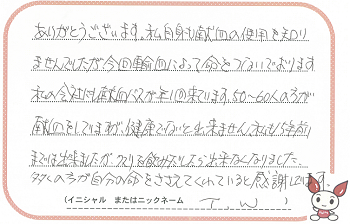 ありがとうございます。私自身も献血の使用を知り
ませんでしたが今回輸血によって命をつないでおります
私の会社にも献血バスが年1回来ています。50〜60人の方が
献血をしてはますが、健康でないと出来ません。私も 年前
までは出来ましたがクスリを飲みだしたら出来なくなりました。
多くの方が自分の命をささえてくれていると感謝しています。
(イニシャル またはニックネーム T,W )